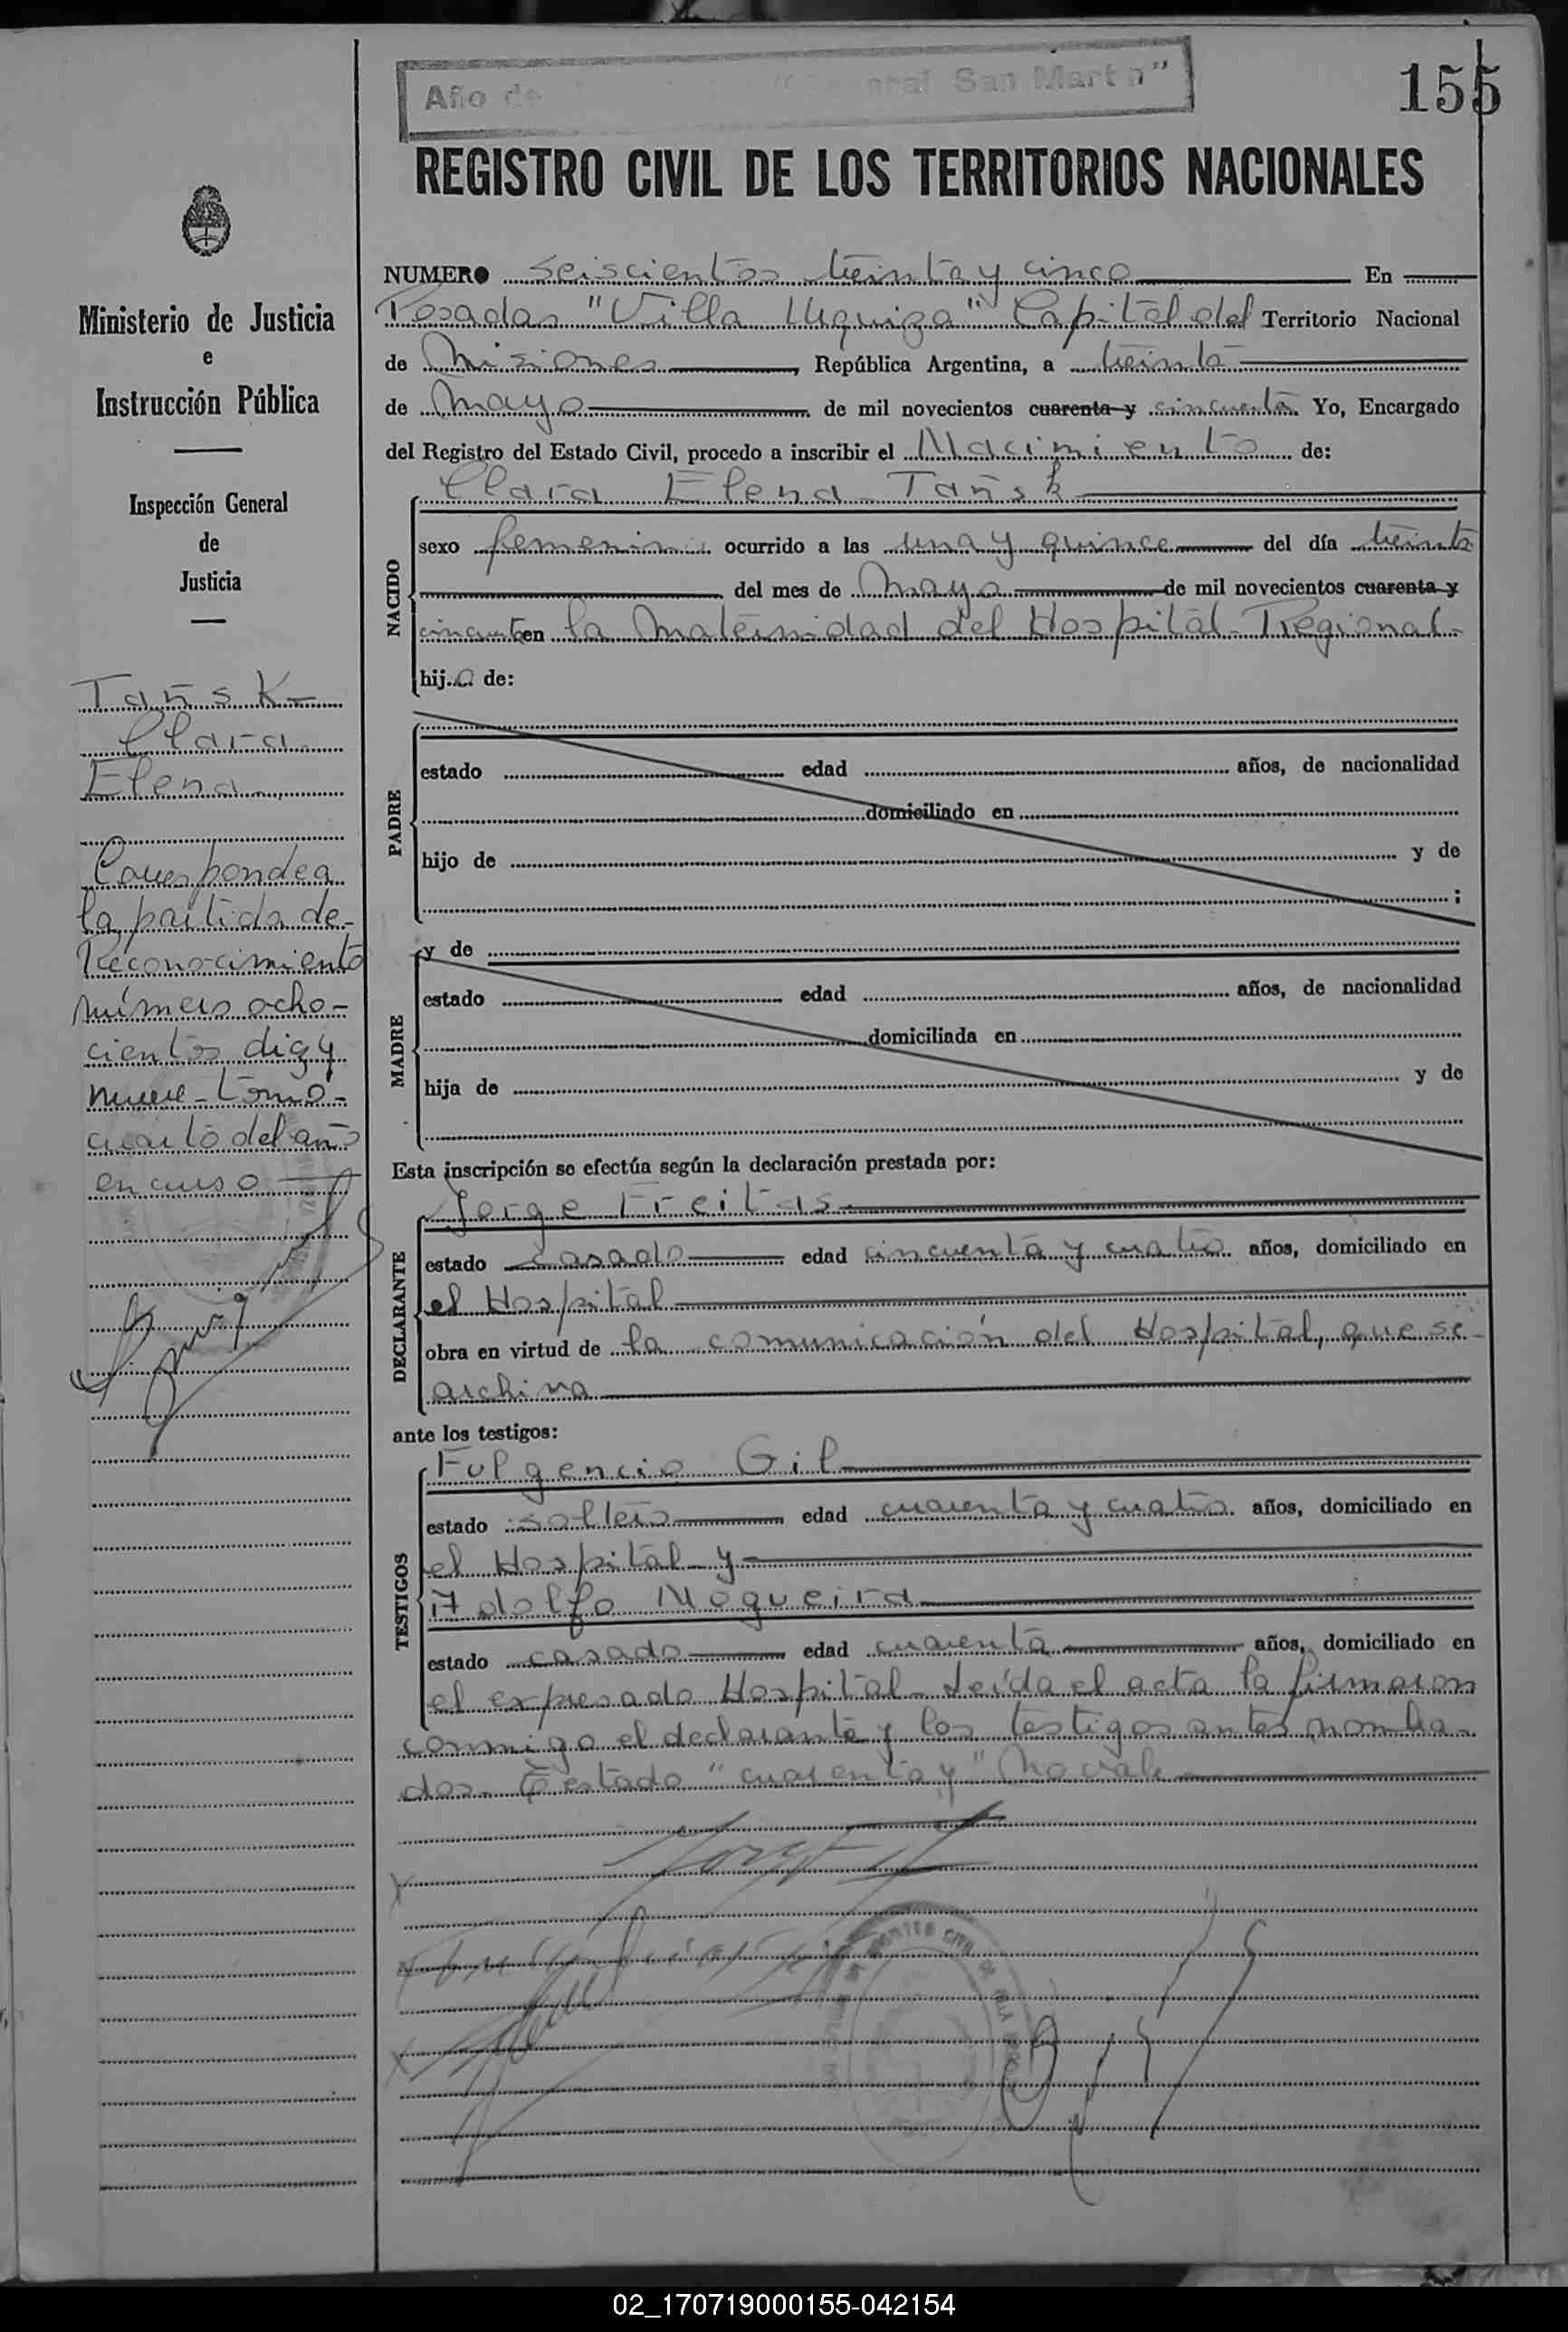 Año de "General San Martín"
155
REGISTRO CIVIL DE LOS TERRITORIOS NACIONALES
Ministerio de Justicia
e
Instrucción Pública
Inspección General
de
Justicia
Tañsk
Clara
Elena
Corresponde a
la partida de
Reconocimiento
número ocho-
cientos diez y
nueve - tomo
cuarto del año
en curso
NUMERO seiscientos treinta y cinco En
Posadas "Villa Urquiza" Capital del Territorio Nacional
de Misiones, República Argentina, a treinta
de Mayo de mil novecientos cuarenta y cincuenta. Yo, Encargado
del Registro del Estado Civil, procedo a inscribir el Nacimiento de:
Clara Elena Tañsk
NACIDO
sexo femenino ocurrido a las una y quince del día treinta
del mes de Mayo de mil novecientos cuarenta y
cincuenta en la Maternidad del Hospital Regional
hija de:
PADRE
estado edad años, de nacionalidad
domiciliado en
hijo de y de
;
MADRE
y de
estado edad años, de nacionalidad
domiciliada en
hija de y de
Esta inscripción se efectúa según la declaración prestada por:
Jorge Freitas
DECLARANTE
estado casado edad cincuenta y cuatro años, domiciliado en
el Hospital
obra en virtud de la comunicación del Hospital, que se
archiva
ante los testigos:
TESTIGOS
Fulgencio Gil
estado soltero edad cuarenta y cuatro años, domiciliado en
el Hospital y
Adolfo Nogueira
estado casado edad cuarenta años, domiciliado en
el expresado Hospital. Leída el acta la firmaron
conmigo el declarante y los testigos antes nombra-
dos. Testado "cuarenta y" No vale
02_170719000155-042154